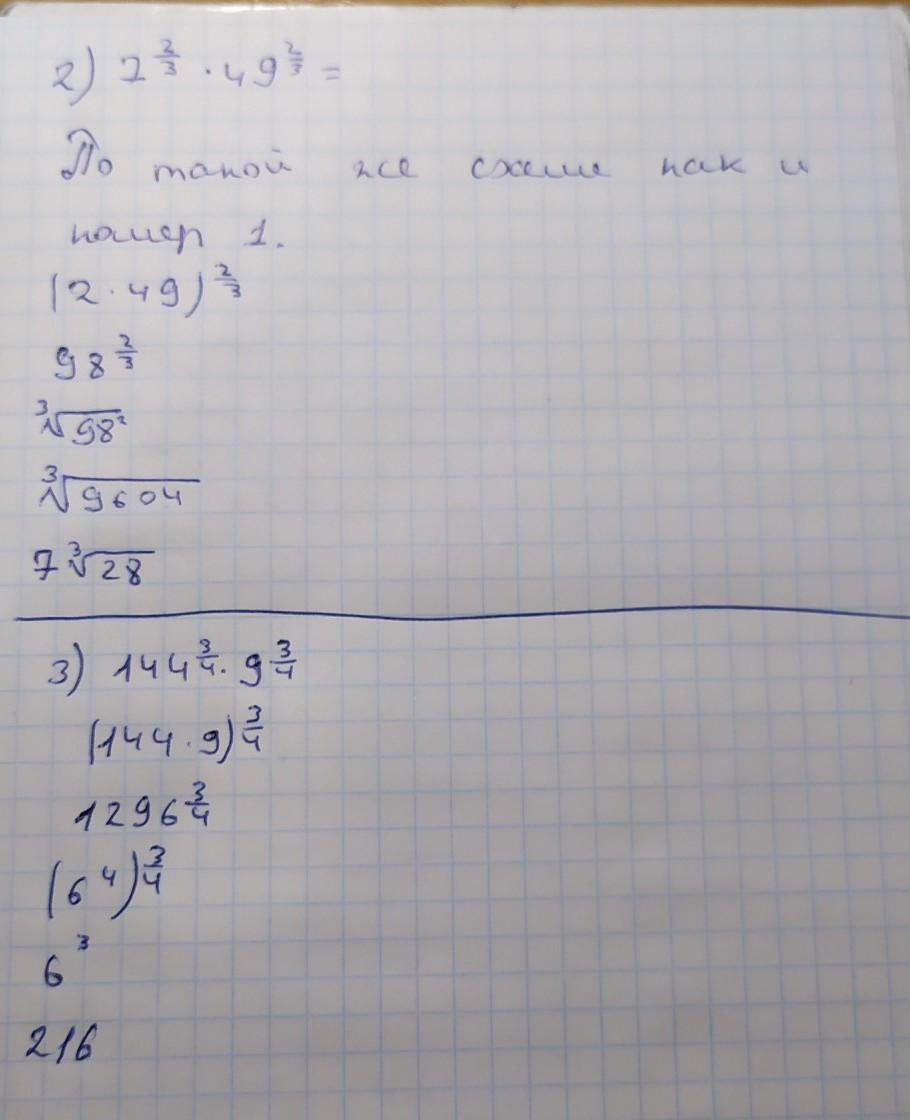 2) 2^(2/3) · 49^(2/3) =
По такой же схеме как и
номер 1.
(2 · 49)^(2/3)
98^(2/3)
∛(98²)
∛9604
7∛28
3) 144^(3/4) · 9^(3/4)
(144 · 9)^(3/4)
1296^(3/4)
(6⁴)^(3/4)
6³
216